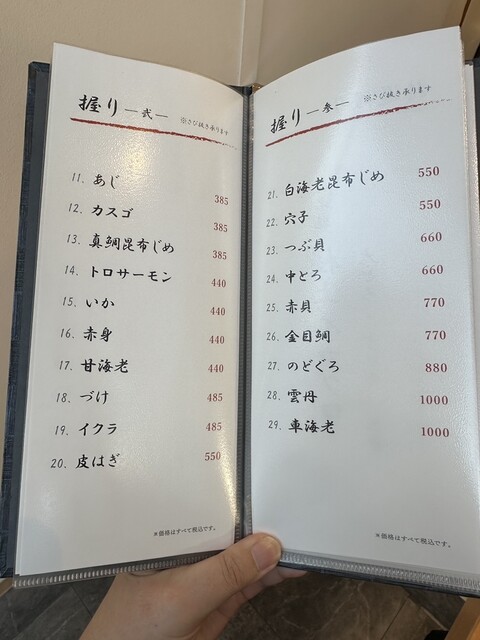 握り ―弐― ※さび抜き承ります
11. あじ 385
12. カスゴ 385
13. 真鯛昆布じめ 385
14. トロサーモン 440
15. いか 440
16. 赤身 440
17. 甘海老 440
18. づけ 485
19. イクラ 485
20. 皮はぎ 550
※価格はすべて税込です。
握り ―参― ※さび抜き承ります
21. 白海老昆布じめ 550
22. 穴子 550
23. つぶ貝 660
24. 中とろ 660
25. 赤貝 770
26. 金目鯛 770
27. のどぐろ 880
28. 雲丹 1000
29. 車海老 1000
※価格はすべて税込です。